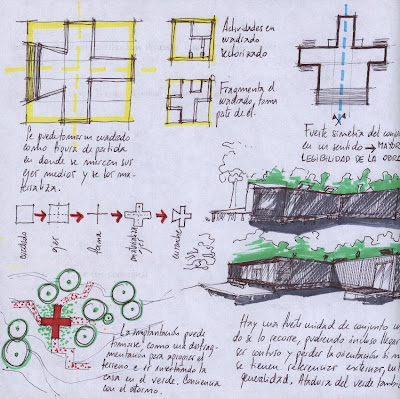 Actividades en
cuadrado
sectorizado
Fragmenta el
cuadrado, toma
parte de él.
Se puede tomar un cuadrado
como figura de partida
en donde se marcan sus
ejes medios y se los ma-
terializa.
Fuerte simetría del conju
en un sentido → MAYOR
LEGIBILIDAD DE LA OBRA
cuadrado
ejes
trama
materializa
ejes
La implantación puede
tomarse, como una defrag-
mentación para apropiar el
terreno e ir insertando la
casa en el verde. Convivencia
con el entorno.
Hay una fuerte unidad de conjunto
do se lo recorre, pudiendo incluso llegar
ser confuso y perder la orientación si
se tienen referencias externas,
generalidad. Atadura del verde